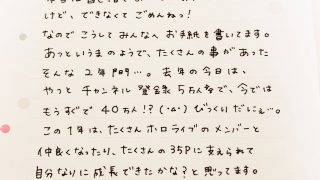 けど、できなくて ごめんねっ！
なので こうして みんなへ お手紙を書いてます。
あっというまのようで、たくさんの事があった
そんな 2年間…。去年の今日は、
やっと チャンネル 登録 5万人なで、今では
もうすぐで 40万人！？(･д･) びっくりだにぇ…。
この1年は、たくさん ホロライブの メンバーと
仲良くなったり、たくさんの 35Pに支えられて
自分なりに成長できたかな？と 思ってます。